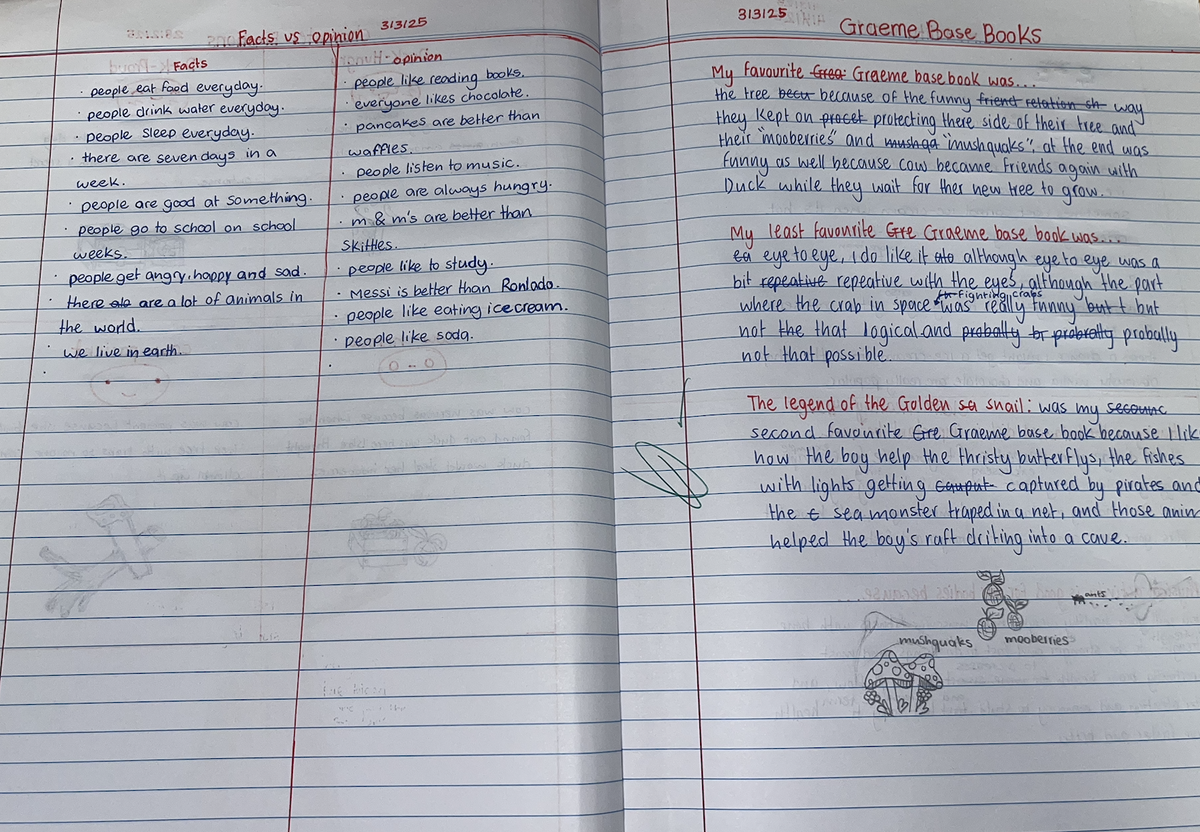 3/3/25
Facts vs opinion
Facts
· people eat food everyday.
· people drink water everyday.
· people sleep everyday.
· there are seven days in a
week.
· people are good at something.
· people go to school on school
weeks.
· people get angry, happy and sad.
· there are a lot of animals in
the world.
· we live in earth.
·
opinion
· people like reading books.
· everyone likes chocolate.
· pancakes are better than
waffles.
· people listen to music.
· people are always hungry.
· m & m's are better than
skittles.
· people like to study.
· Messi is better than Ronlado.
· people like eating icecream.
· people like soda.
·
3/3/25
Graeme Base Books
My favourite Grea Graeme base book was...
the tree becu because of the funny friend relation sh way
they kept on procet protecting there side of their tree and
their "mooberries" and mushqa "mushquaks". at the end was
funny as well because cow became friends again with
Duck while they wait for ther new tree to grow.
My least favourite Gre Graeme base book was...
ea eye to eye, i do like it alto although eye to eye was a
bit repeative repeative with the eyes, although the part
where the crab in space fighting crabs was really funny but t but
not the that logical and probally br probrally probally
not that possible.
The legend of the Golden sa snail: was my secounc
second favourite Gre Graeme base book because I lik
how the boy help the thristy butterflys, the fishes
with lights getting cauput captured by pirates and
the t sea monster traped in a net, and those anim
helped the boy's raft driting into a cave.
ants
mushquaks
mooberries